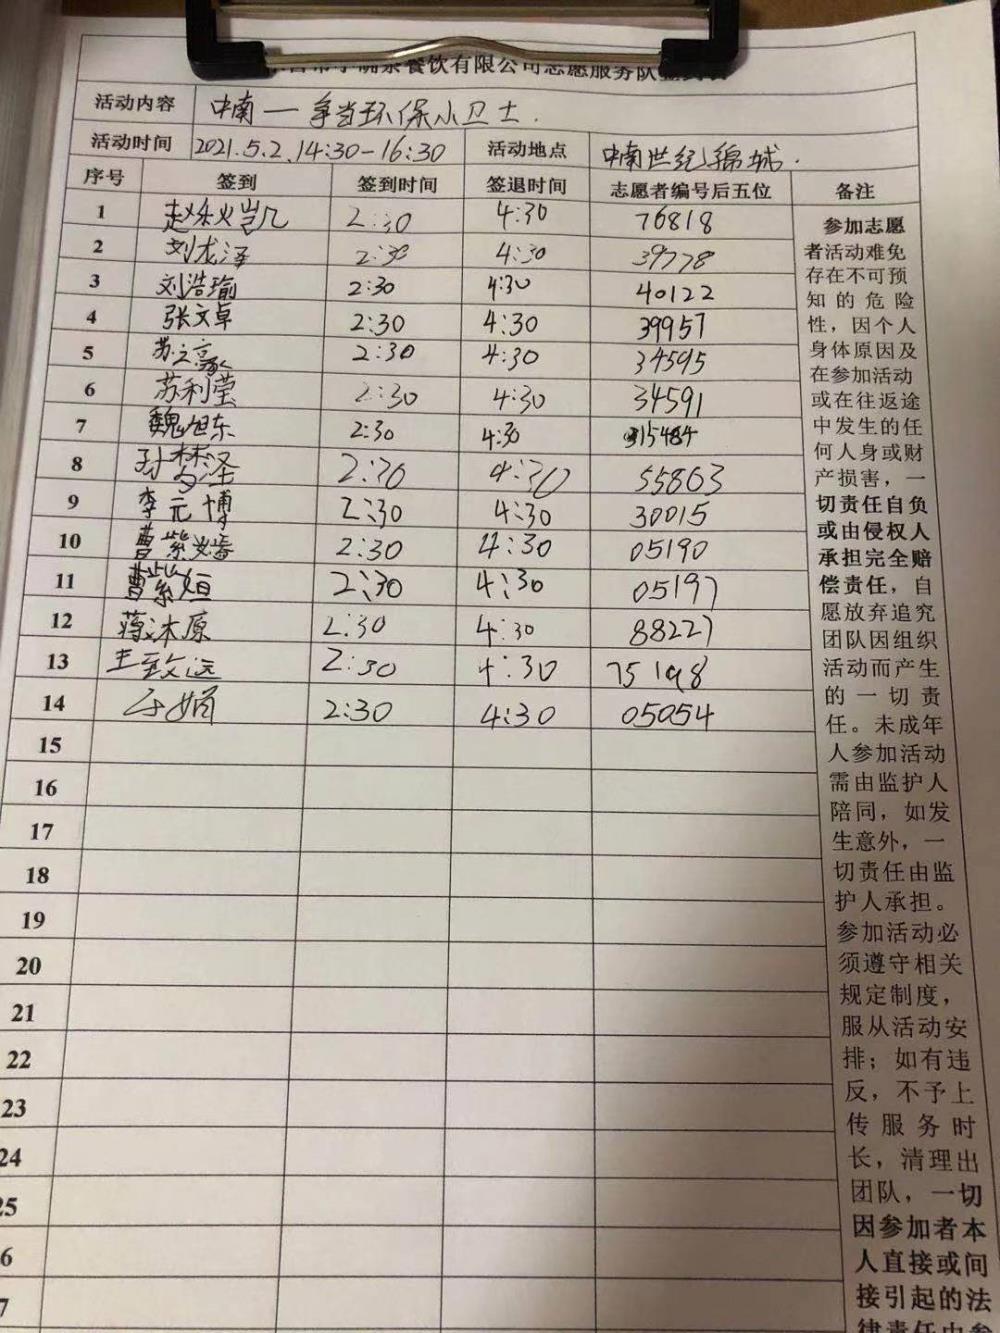 餐饮有限公司志愿服务队
活动内容 中南一争当环保小卫士.
活动时间 2021.5.2.14:30-16:30 活动地点 中南世纪锦城.
序号 签到 签到时间 签退时间 志愿者编号后五位 备注
1 赵烁凯 2:30 4:30 76818
2 刘龙泽 2:30 4:30 39778
3 刘浩瑜 2:30 4:30 40122
4 张文卓 2:30 4:30 39957
5 苏之豪 2:30 4:30 34595
6 苏利莹 2:30 4:30 34591
7 魏旭东 2:30 4:30 15484
8 孙梦泽 2:30 4:30 55863
9 李元博 2:30 4:30 30015
10 曹紫 2:30 4:30 05190
11 曹紫姮 2:30 4:30 05197
12 蒋沐原 2:30 4:30 88227
13 王致远 2:30 4:30 75198
14 于娟 2:30 4:30 05054
15
16
17
18
19
20
21
22
23
24
25
6
7
参加志愿
者活动难免
存在不可预
知的危险
性，因个人
身体原因及
在参加活动
或在往返途
中发生的任
何人身或财
产损害，一
切责任自负
或由侵权人
承担完全赔
偿责任，自
愿放弃追究
团队因组织
活动而产生
的一切责
任。未成年
人参加活动
需由监护人
陪同，如发
生意外，一
切责任由监
护人承担。
参加活动必
须遵守相关
规定制度，
服从活动安
排；如有违
反，不予上
传服务时
长，清理出
团队，一切
因参加者本
人直接或间
接引起的法
律责任由参